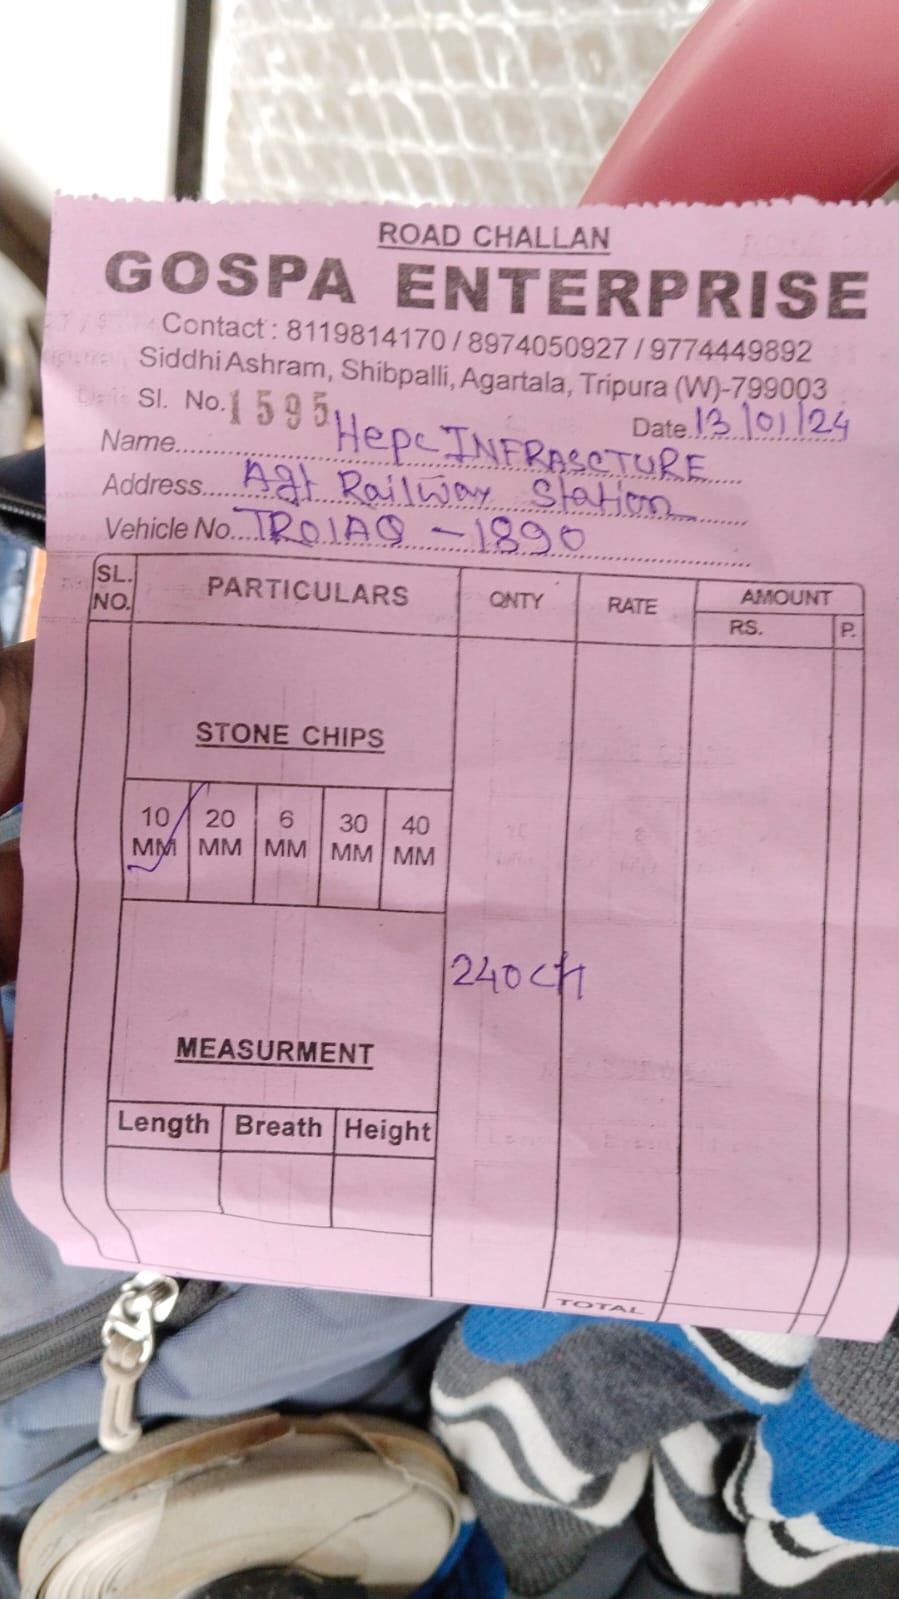 ROAD CHALLAN
GOSPA ENTERPRISE
Contact : 8119814170 / 8974050927 / 9774449892
Siddhi Ashram, Shibpalli, Agartala, Tripura (W)-799003
Sl. No. 1595
Date 13/01/24
Name Hepc INFRASCTURE
Address Agt Railway Station
Vehicle No. TR01AQ - 1890
SL. NO. PARTICULARS QNTY RATE AMOUNT
RS. P.
STONE CHIPS
10 MM 20 MM 6 MM 30 MM 40 MM
240 cft
MEASURMENT
Length Breath Height
TOTAL